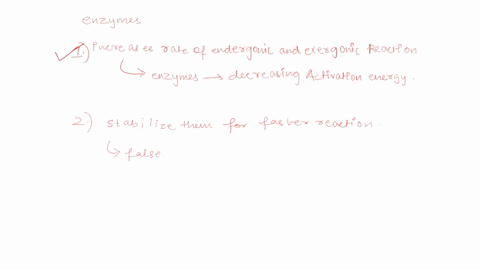 enzymes
1.) Increases rate of endergonic and exergonic reaction
→ enzymes → decreasing Activation energy.
2) stabilize them for faster reaction.
→ false